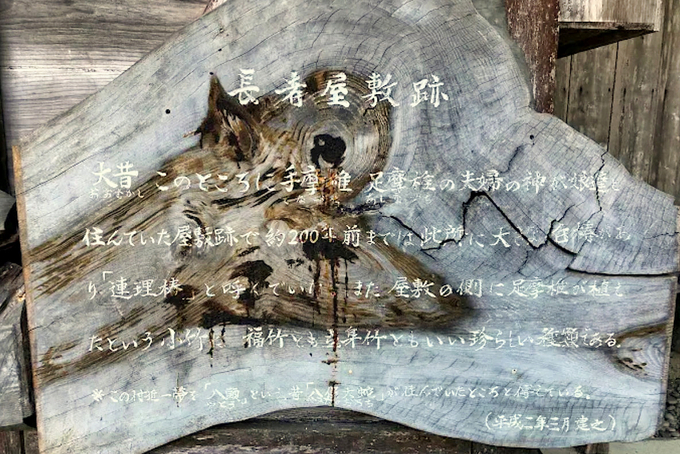 長者屋敷跡
大昔 このところに手摩椎 足摩椎の夫婦の神が
おおむかし
住んでいた屋敷跡で約200年前までは此所に大
り「連理椿」と呼んでいた また 屋敷の側に足摩椎が植え
たという小竹 福竹とも 年竹ともいい珍らしい種類である。
※この附近一帯を「八頭」といい昔「八岐大蛇」が住んでいたところと伝えている。
(平成二年三月建之)